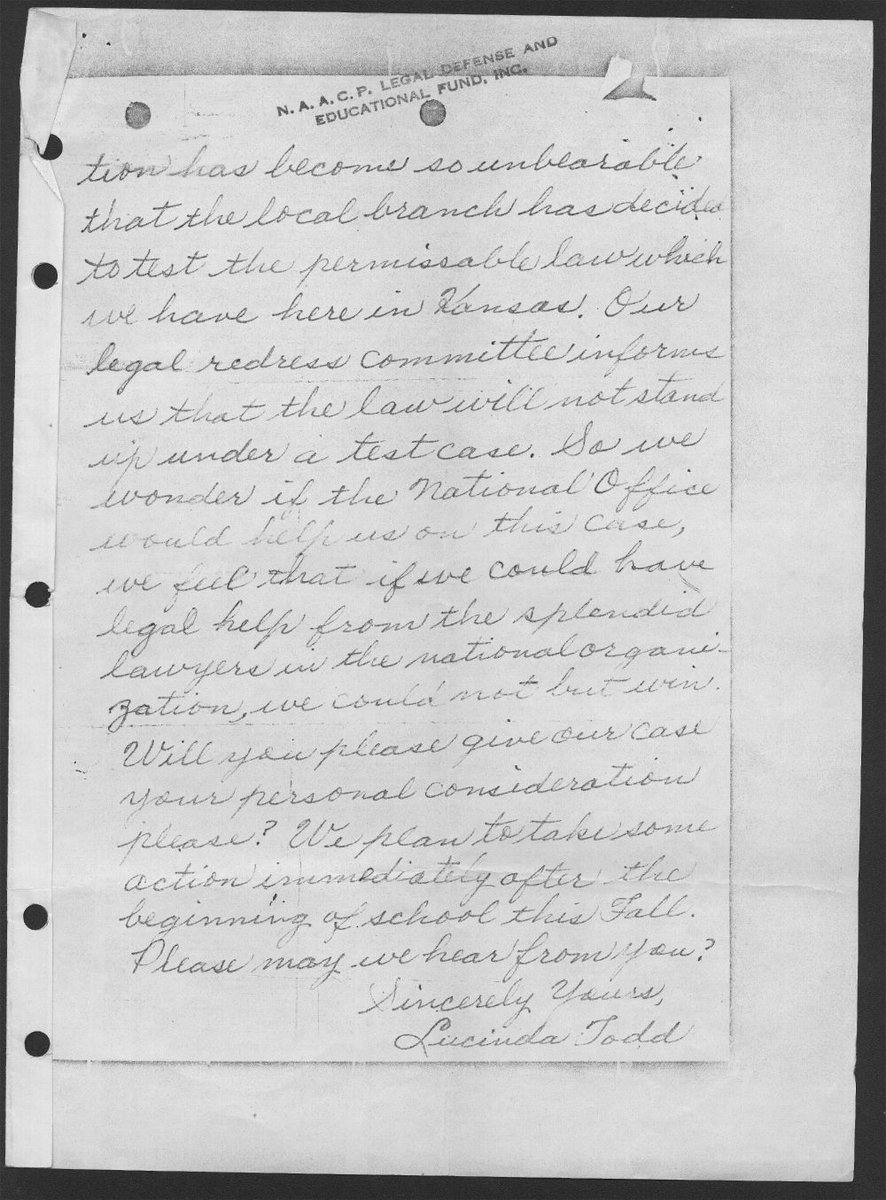 N. A. A. C. P. LEGAL DEFENSE AND
EDUCATIONAL FUND, INC.
tion has become so unbearable
that the local branch has decided
to test the permissable law which
we have here in Kansas. Our
legal redress committee informs
us that the law will not stand
up under a test case. So we
wonder if the National Office
would help us on this case,
we feel that if we could have
legal help from the splendid
lawyers in the national organi-
zation, we could not but win.
Will you please give our case
your personal consideration
please? We plan to take some
action immediately after the
beginning of school this Fall.
Please may we hear from you?
Sincerely Yours,
Lucinda Todd